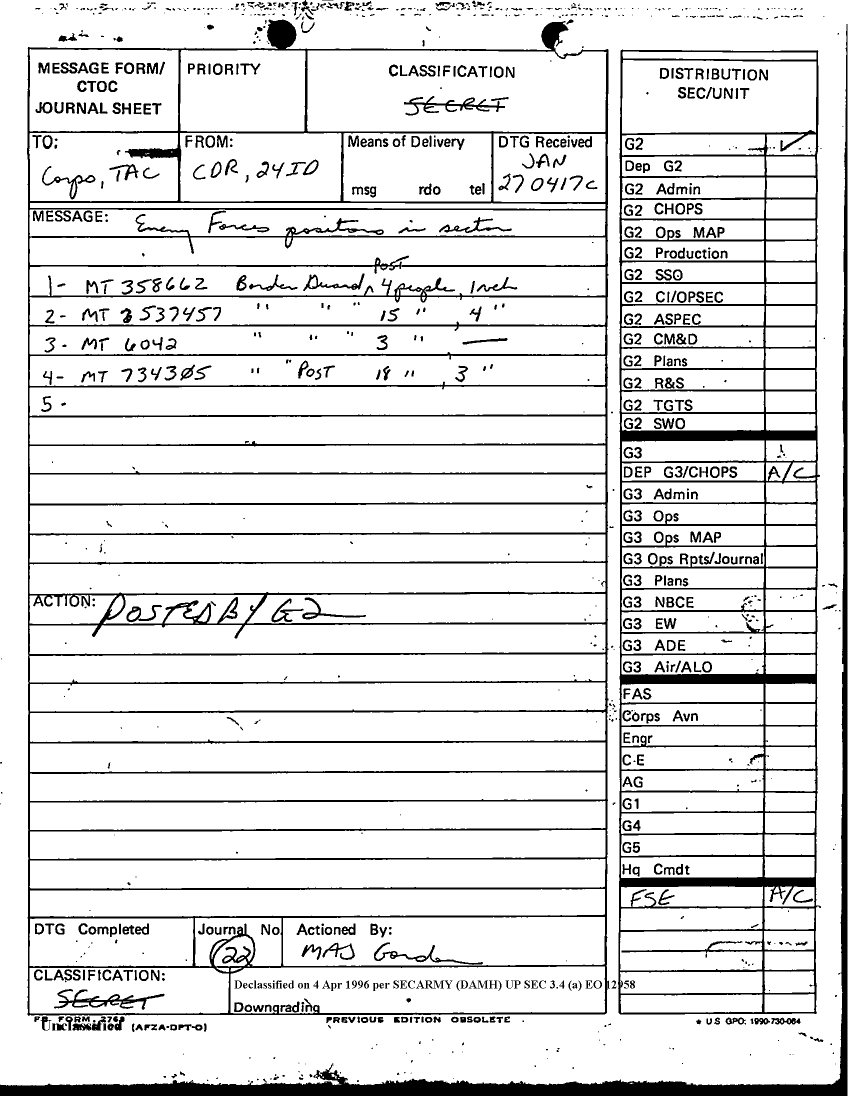 MESSAGE FORM/
CTOC
JOURNAL SHEET
PRIORITY
CLASSIFICATION
SECRET
DISTRIBUTION
SEC/UNIT
TO:
Corps, TAC
FROM:
CDR, 24ID
Means of Delivery
msg rdo tel
DTG Received
JAN
270417C
MESSAGE: Enemy Forces positions in sector
Post
1- MT 358662 Border Guard, 4 people, 1 veh
2- MT 3537457 " " " 15 " , 4 "
3- MT 6042 " " " 3 " —
4- MT 734305 " " POST 18 " , 3 "
5-
ACTION: POSTED BY G2
DTG Completed
Journal No.
22
Actioned By:
MAJ Gordon
CLASSIFICATION:
SECRET
Declassified on 4 Apr 1996 per SECARMY (DAMH) UP SEC 3.4 (a) EO 12958
Downgrading
Unclassified (AFZA-DPT-O)
PREVIOUS EDITION OBSOLETE
G2 ✓
Dep G2
G2 Admin
G2 CHOPS
G2 Ops MAP
G2 Production
G2 SSO
G2 CI/OPSEC
G2 ASPEC
G2 CM&D
G2 Plans
G2 R&S
G2 TGTS
G2 SWO
G3
DEP G3/CHOPS A/C
G3 Admin
G3 Ops
G3 Ops MAP
G3 Ops Rpts/Journal
G3 Plans
G3 NBCE
G3 EW
G3 ADE
G3 Air/ALO
FAS
Corps Avn
Engr
C-E
AG
G1
G4
G5
Hq Cmdt
FSE A/C
* U.S GPO: 1990-730-064